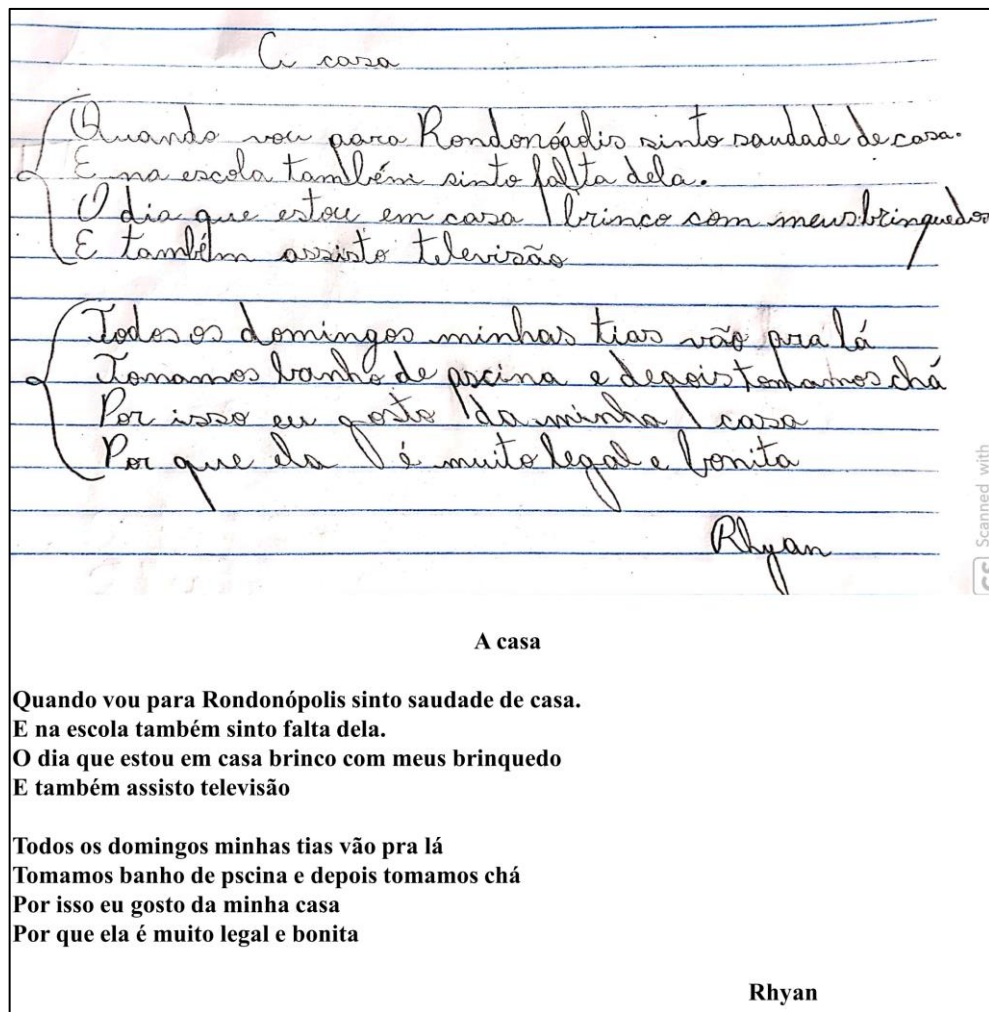 A casa
Quando vou para Rondonópolis sinto saudade de casa.
E na escola também sinto falta dela.
O dia que estou em casa brinco com meus brinquedos
E também assisto televisão
Todos os domingos minhas tias vão pra lá
Tomamos banho de pscina e depois tomamos chá
Por isso eu gosto da minha casa
Por que ela é muito legal e bonita
Rhyan
CS Scanned with
A casa
Quando vou para Rondonópolis sinto saudade de casa.
E na escola também sinto falta dela.
O dia que estou em casa brinco com meus brinquedo
E também assisto televisão
Todos os domingos minhas tias vão pra lá
Tomamos banho de pscina e depois tomamos chá
Por isso eu gosto da minha casa
Por que ela é muito legal e bonita
Rhyan